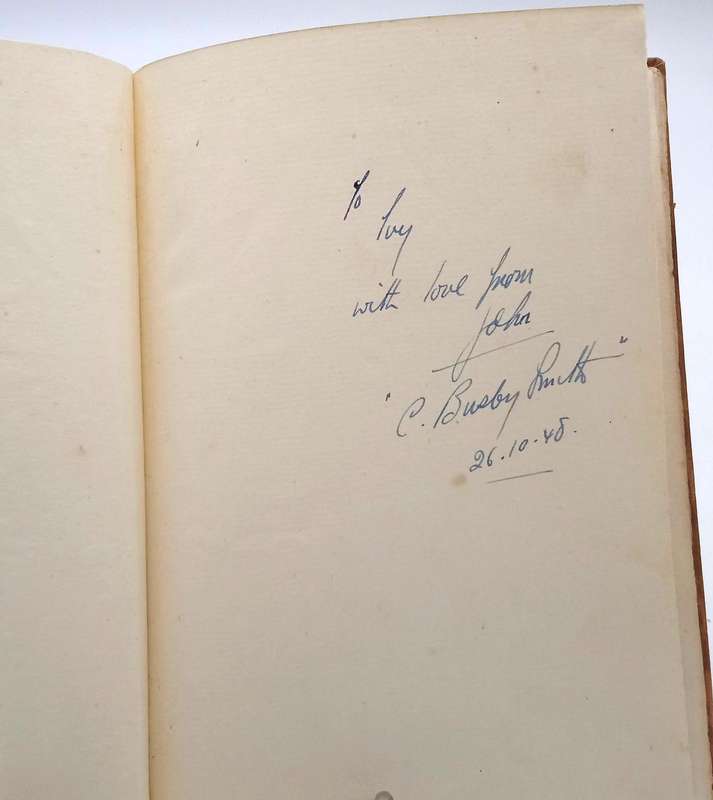 To
Ivy
with love from
John
"C. Busby Smith"
26.10.48.